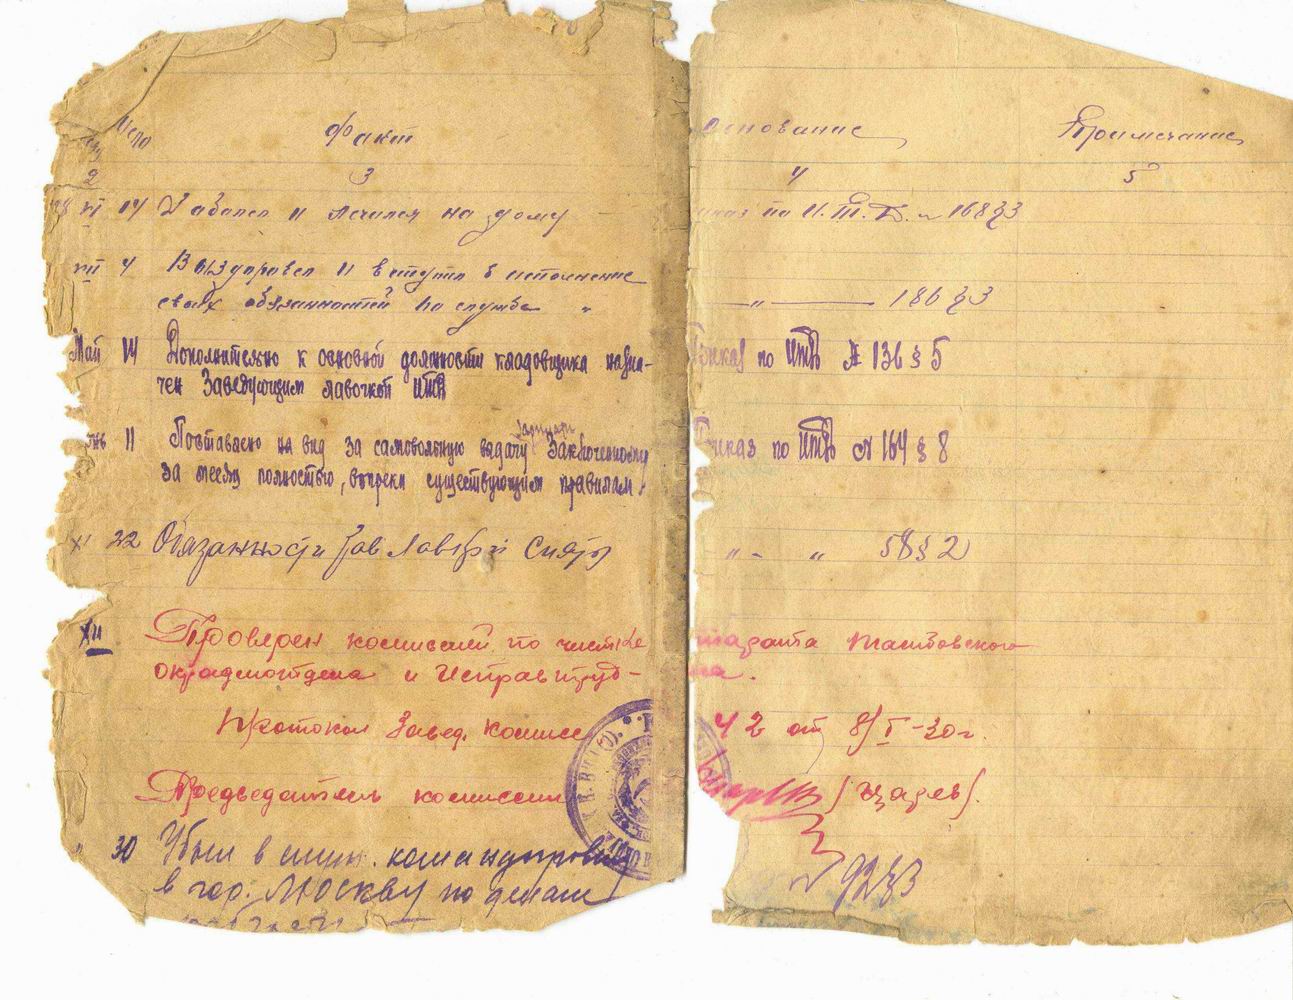 Число Факт Основание Примечание
2 3 4 5
VI 14 Заболел и лечился на дому по И.Т.Д. № 168 § 3
VII 4 Выздоровел и вступил в исполнение
своих обязанностей по службе " — " — 186 § 3
Май 14 Дополнительно к основной должности кладовщика назна- Приказ по ИТД № 136 § 5
чен Заведующим лавочкой ИТД
11 Поставлено на вид за самовольную выдачу Заключенному Приказ по ИТД № 164 § 8
за месяц полностью, вопреки существующим правилам.
XI 22 Обязанности Зав Лавкой Сняты " - " 58 § 2
XII Проверен комиссией по чистке аппарата
окрадмотдела и Исправтруд-
дома.
Протокол Завед. комисс 42 от 8/I-30г.
Председатель комиссии (Царев).
30 Убыл в командировку
в гор. Москву по делам № 92 § 3